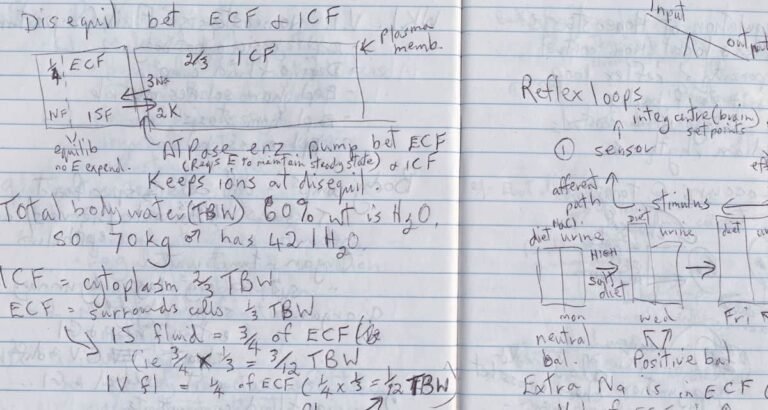 Disequil bet ECF & ICF
1/4 ECF
2/3 ICF
Plasma
memb.
3Na
2K
ISF
equilib
no E expend.
ATPase enz pump bet ECF
(Reqs E to maintain steady state) & ICF
Keeps ions at disequil.
Total body water (TBW) 60% wt is H2O.
so 70kg ♂ has 42 l H2O.
ICF = cytoplasm 2/3 TBW
ECF = surrounds cells 1/3 TBW
IS fluid = 3/4 of ECF
(ie 3/4 x 1/3 = 3/12 TBW
IV fl = 1/4 of ECF (1/4 x 1/3 = 1/12 TBW)
Input
output
Reflex loops
integ centre (brain)
set points
① sensor
afferent
path
stimulus
NaCl
diet urine
HIGH
salt
diet
diet
urine
diet
mon
wed
Fri
neutral
bal.
Positive bal
Extra Na is in ECF